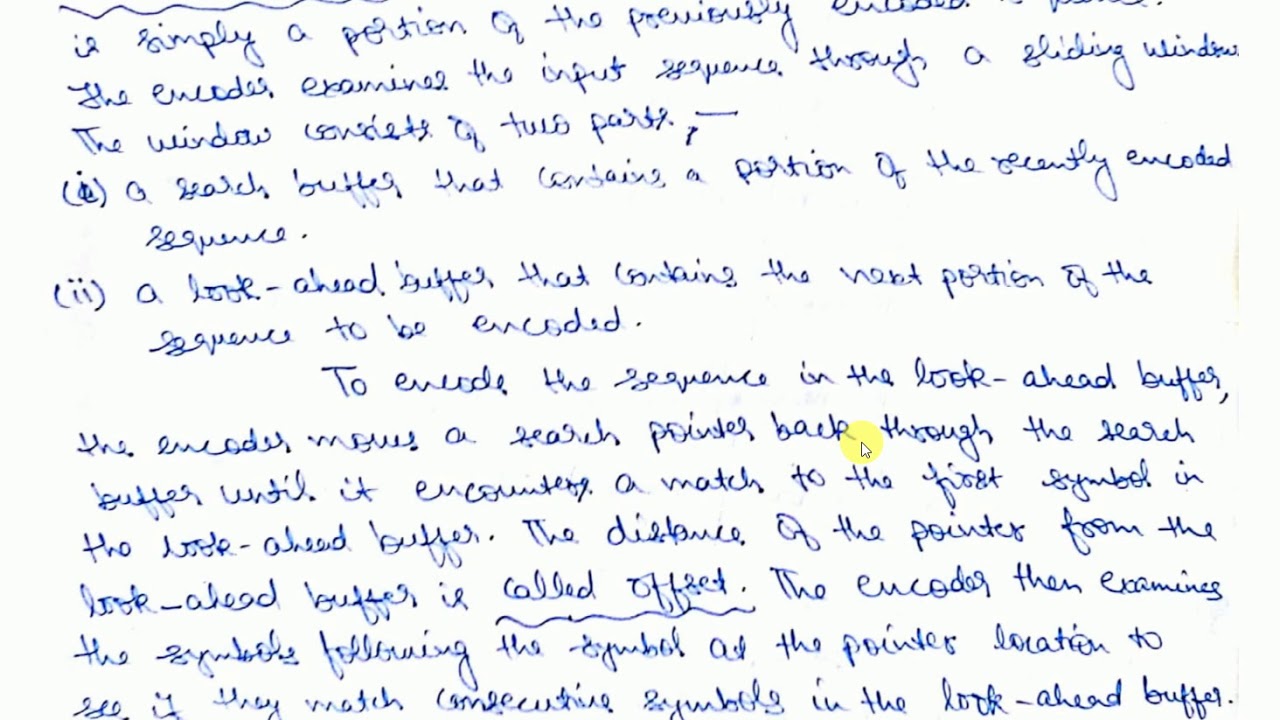 is simply a portion of the previously encoded
The encoder examines the input sequence through a sliding window
The window consists of two parts, —
(i) a search buffer that contains a portion of the recently encoded
sequence.
(ii) a look-ahead buffer that contains the next portion of the
sequence to be encoded.
To encode the sequence in the look-ahead buffer,
the encoder moves a search pointer back through the search
buffer until it encounters a match to the first symbol in
the look-ahead buffer. The distance of the pointer from the
look-ahead buffer is called offset. The encoder then examines
the symbols following the symbol at the pointer location to
see if they match consecutive symbols in the look-ahead buffer.